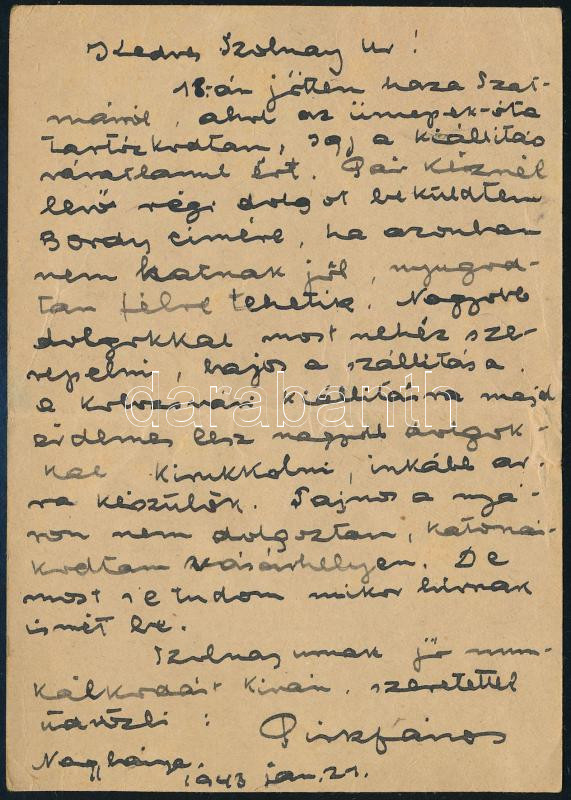 Kedves Szolnay Ur!
18.-án jöttem haza Szat-
márról, ahol az ünnepek óta
tartózkodtam, így a kiállítás
váratlanul ért. Pár kéznél
levő régi dolgot beküldtem
Bordy címére, ha azonban
nem hatnak jól, nyugod-
tan félre tehetik. Nagyobb
dolgokkal most nehéz sze-
repelni, bajos a szállítása.
a kolozsvári kiállításra majd
érdemes lesz nagyobb dolgok-
kal kirukkolni, inkább ar-
ra készülök. Sajnos a nyá-
ron nem dolgoztam, katonás-
kodtam Vásárhelyen. De
most se tudom mikor hívnak
ismét be.
Szolnay urnak jó mun-
kálkodást kíván, szeretettel
üdvözli: Pirk János
Nagybánya 1943 jan. 21.
darabanth